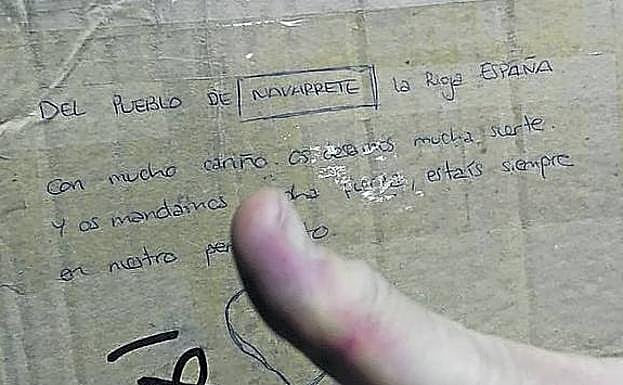 DEL PUEBLO DE NAVARRETE la Rioja ESPAÑA
Con mucho cariño. os deseamos mucha suerte.
y os mandamos fuerza, estaís siempre
en nuestro